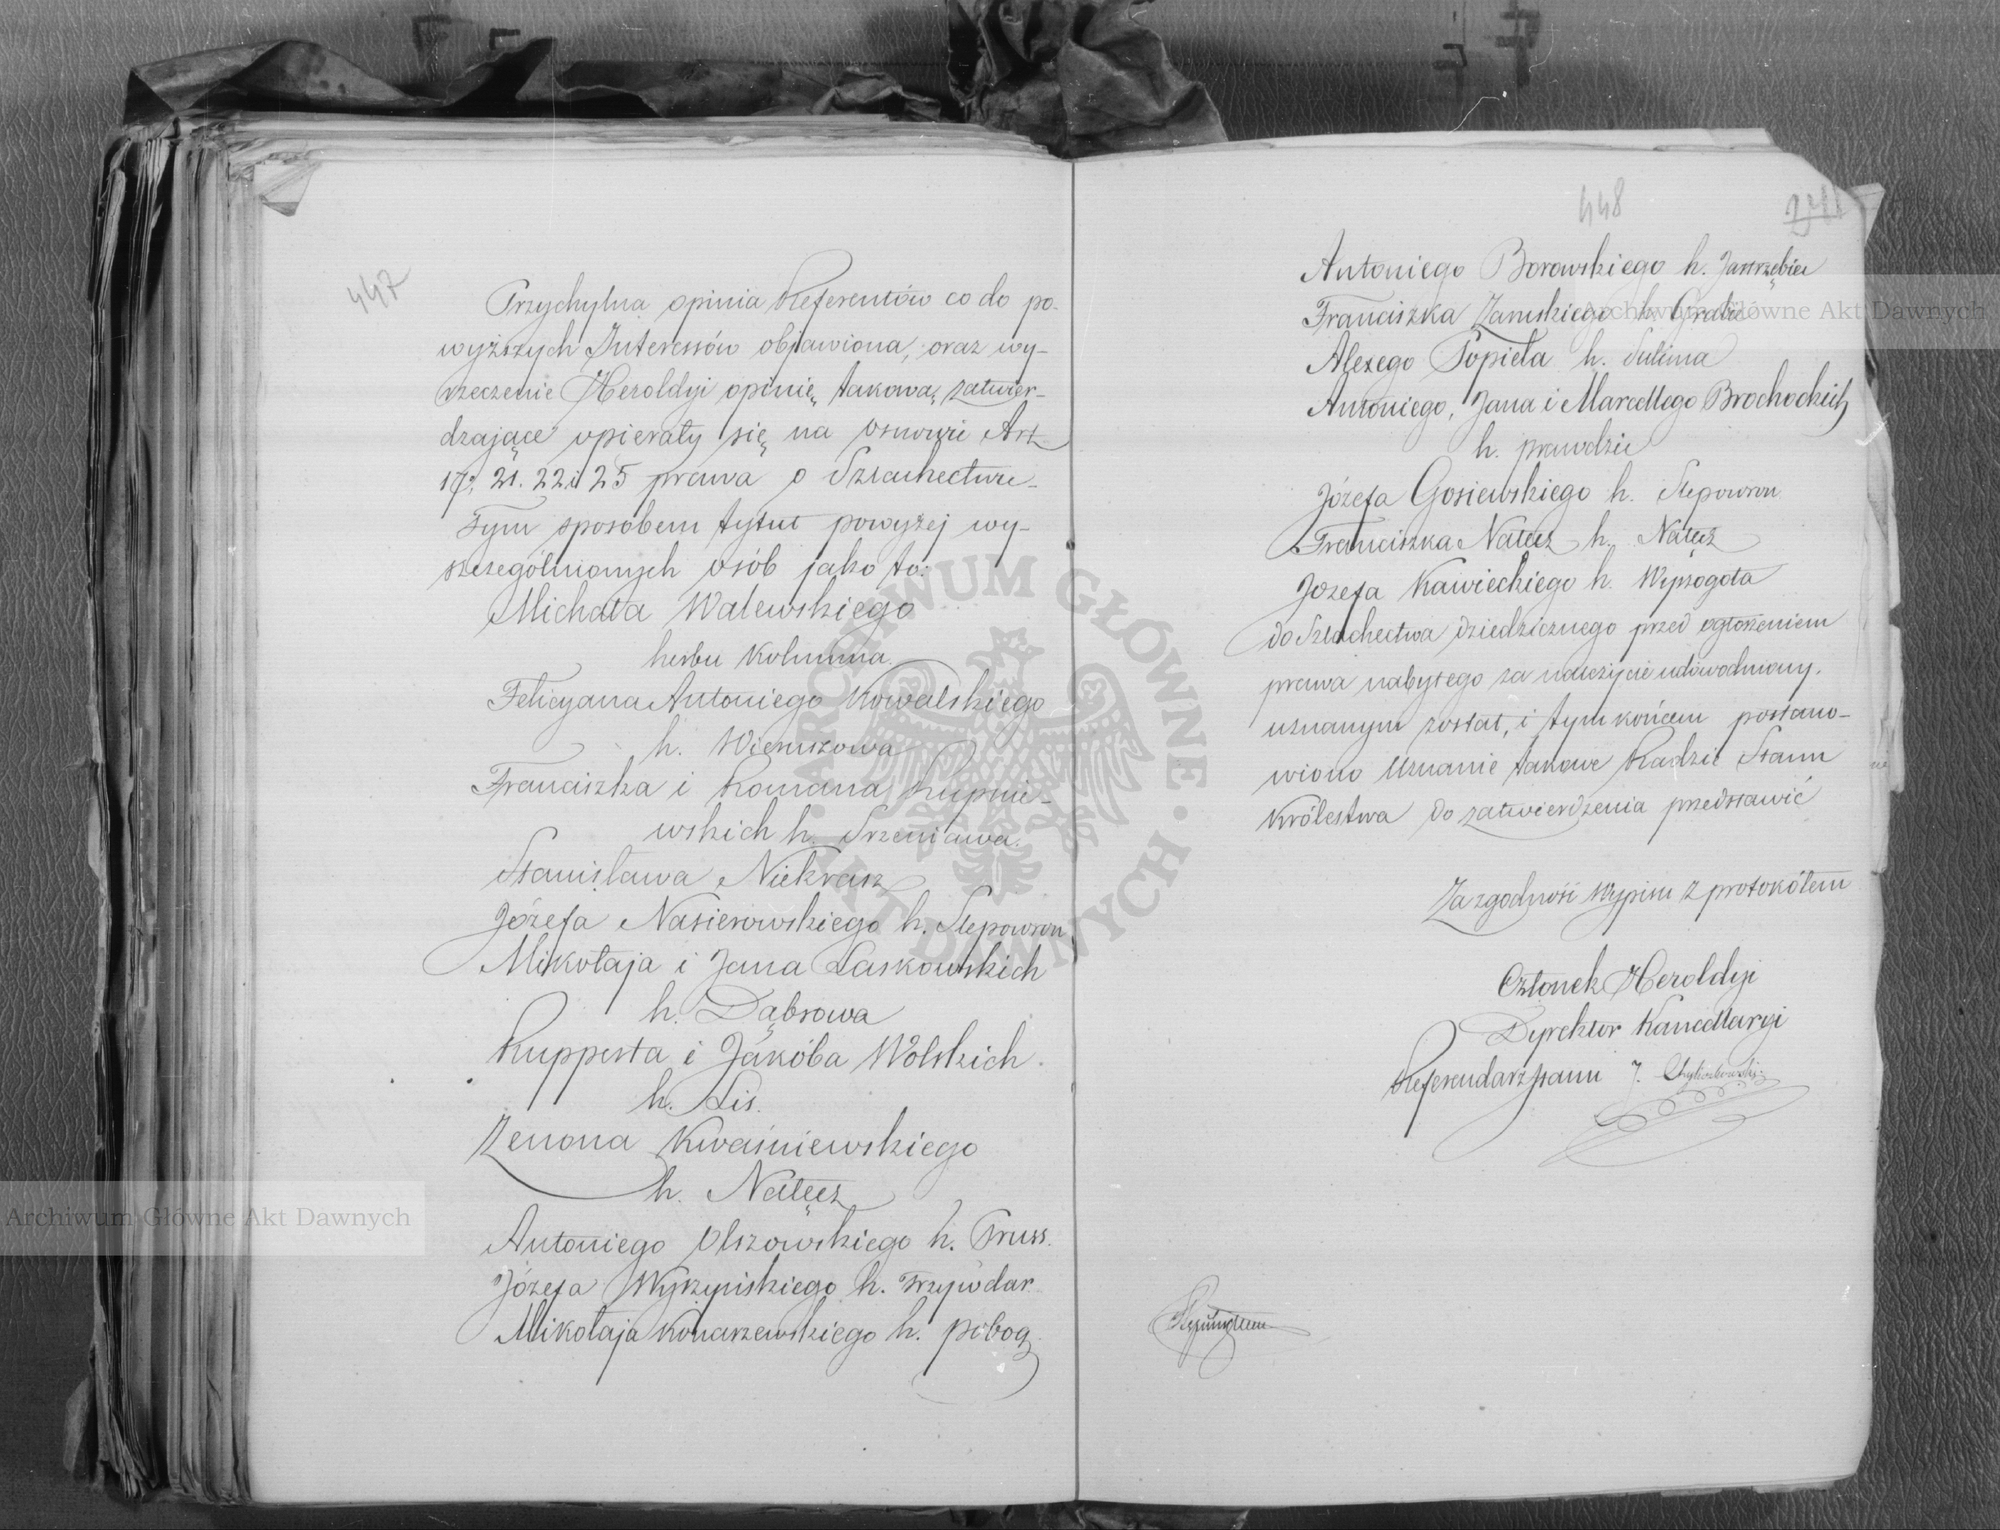 447
Przychylna opinia Referentów co do po-
wyższych Interessów objawiona, oraz wy-
rzeczenie Heroldyi opinię takową zatwier-
dzające opierały się na osnowie Art
17, 21. 22 i 25 prawa o Szlachectwie
Tym sposobem tytuł powyżej wy-
szczególnionych osób jako to:
Michała Walewskiego
herbu Kolumna.
Felicyana Antoniego Kowalskiego
h. Wieruszowa
Franciszka i Romana Rupnie-
wskich h. Srzeniawa.
Stanisława Niekrasz
Józefa Nasierowskiego h. Slepowron
Mikołaja i Jana Laskowskich
h. Dąbrowa
Rupperta i Jakóba Wolskich
h. Lis.
Zenona Kwaśniewskiego
h. Nałęcz
Antoniego Olszowskiego h. Pruss.
Józefa Wyrzyńskiego h. Trzywdar
Mikołaja Konarzewskiego h. pobog
448
241
Antoniego Borowskiego h. Jastrzębiec
Franciszka Zaruskiego h. Grabie
Alexego Popiela h. Sulima
Antoniego, Jana i Marcellego Brochockich
h. prawdzic
Józefa Gosiewskiego h. Slepowron
Franciszka Nałęcz h. Nałęcz
Jozefa Kawieckiego h. Wyssogota
do Szlachectwa dziedzicznego przed ogłoszeniem
prawa nabytego za należycie udowodniony,
uznanym został, i tym końcem postano-
wiono Uznanie takowe Radzie Stanu
Królestwa do zatwierdzenia przedstawić
Za zgodność Wypisu z protokółem
Członek Heroldyi
Dyrektor Kancellaryi
Referendarz Stanu J.
Archiwum Główne Akt Dawnych
Archiwum Główne Akt Dawnych
ARCHIWUM GŁÓWNE AKT DAWNYCH